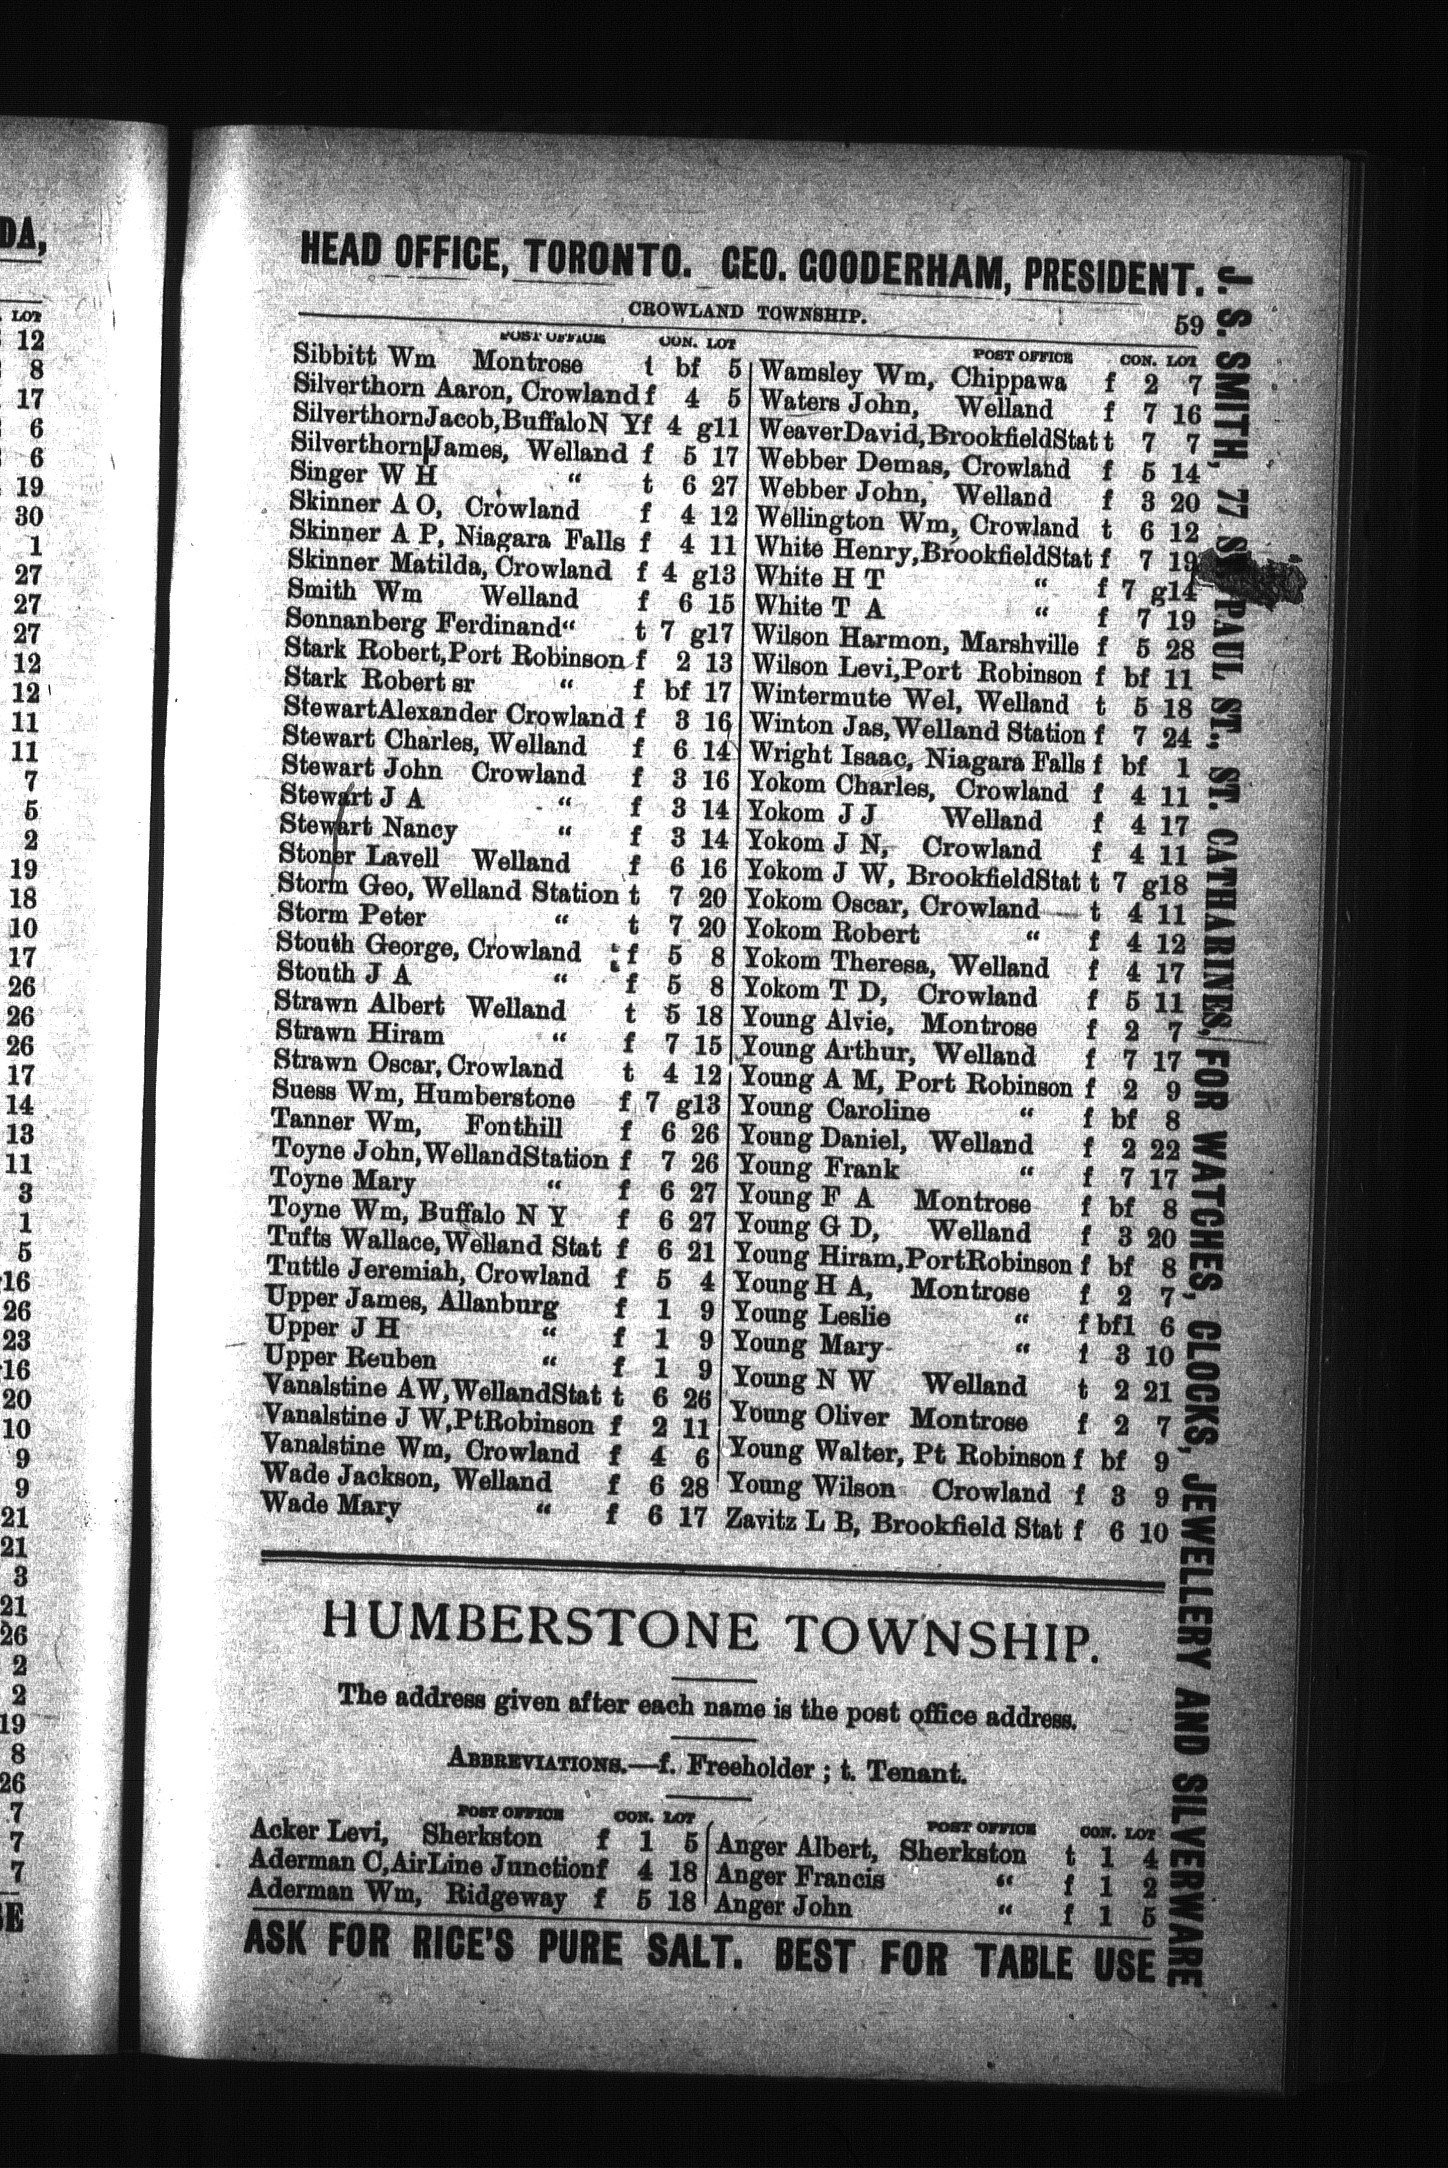 DA,
LOT
12
8
17
6
6
19
30
1
27
27
27
12
12
11
11
7
5
2
19
18
10
17
26
26
26
17
14
13
11
3
1
5
16
26
23
16
20
10
9
9
21
21
3
21
26
2
2
19
8
26
7
7
7
HEAD OFFICE, TORONTO. GEO. GOODERHAM, PRESIDENT.
CROWLAND TOWNSHIP. 59
POST OFFICE CON. LOT
Sibbitt Wm Montrose t bf 5
Silverthorn Aaron, Crowland f 4 5
SilverthornJacob,BuffaloN Y f 4 g11
Silverthorn James, Welland f 5 17
Singer W H “ t 6 27
Skinner A O, Crowland f 4 12
Skinner A P, Niagara Falls f 4 11
Skinner Matilda, Crowland f 4 g13
Smith Wm Welland f 6 15
Sonnanberg Ferdinand “ t 7 g17
Stark Robert,Port Robinson f 2 13
Stark Robert sr “ f bf 17
StewartAlexander Crowland f 3 16
Stewart Charles, Welland f 6 14
Stewart John Crowland f 3 16
Stewart J A “ f 3 14
Stewart Nancy “ f 3 14
Stoner Lavell Welland f 6 16
Storm Geo, Welland Station t 7 20
Storm Peter “ t 7 20
Stouth George, Crowland f 5 8
Stouth J A “ f 5 8
Strawn Albert Welland t 5 18
Strawn Hiram “ f 7 15
Strawn Oscar, Crowland t 4 12
Suess Wm, Humberstone f 7 g13
Tanner Wm, Fonthill f 6 26
Toyne John,WellandStation f 7 26
Toyne Mary “ f 6 27
Toyne Wm, Buffalo N Y f 6 27
Tufts Wallace,Welland Stat f 6 21
Tuttle Jeremiah, Crowland f 5 4
Upper James, Allanburg f 1 9
Upper J H “ f 1 9
Upper Reuben “ f 1 9
Vanalstine AW,WellandStat t 6 26
Vanalstine J W,PtRobinson f 2 11
Vanalstine Wm, Crowland f 4 6
Wade Jackson, Welland f 6 28
Wade Mary “ f 6 17
POST OFFICE CON. LOT
Wamsley Wm, Chippawa f 2 7
Waters John, Welland f 7 16
WeaverDavid,BrookfieldStat t 7 7
Webber Demas, Crowland f 5 14
Webber John, Welland f 3 20
Wellington Wm, Crowland t 6 12
White Henry,BrookfieldStat f 7 19
White H T “ f 7 g14
White T A “ f 7 19
Wilson Harmon, Marshville f 5 28
Wilson Levi,Port Robinson f bf 11
Wintermute Wel, Welland t 5 18
Winton Jas,Welland Station f 7 24
Wright Isaac, Niagara Falls f bf 1
Yokom Charles, Crowland f 4 11
Yokom J J Welland f 4 17
Yokom J N, Crowland f 4 11
Yokom J W, BrookfieldStat t 7 g18
Yokom Oscar, Crowland t 4 11
Yokom Robert “ f 4 12
Yokom Theresa, Welland f 4 17
Yokom T D, Crowland f 5 11
Young Alvie, Montrose f 2 7
Young Arthur, Welland f 7 17
Young A M, Port Robinson f 2 9
Young Caroline “ f bf 8
Young Daniel, Welland f 2 22
Young Frank “ f 7 17
Young F A Montrose f bf 8
Young G D, Welland f 3 20
Young Hiram,PortRobinson f bf 8
Young H A, Montrose f 2 7
Young Leslie “ f bf1 6
Young Mary “ f 3 10
Young N W Welland t 2 21
Young Oliver Montrose f 2 7
Young Walter, Pt Robinson f bf 9
Young Wilson Crowland f 3 9
Zavitz L B, Brookfield Stat f 6 10
HUMBERSTONE TOWNSHIP.
The address given after each name is the post office address.
ABBREVIATIONS.—f. Freeholder ; t. Tenant.
POST OFFICE CON. LOT
Acker Levi, Sherkston f 1 5
Aderman C,AirLine Junction f 4 18
Aderman Wm, Ridgeway f 5 18
POST OFFICE CON. LOT
Anger Albert, Sherkston t 1 4
Anger Francis “ f 1 2
Anger John “ f 1 5
ASK FOR RICE'S PURE SALT. BEST FOR TABLE USE
J. S. SMITH, 77 ST. PAUL ST., ST. CATHARINES, FOR WATCHES, CLOCKS, JEWELLERY AND SILVERWARE